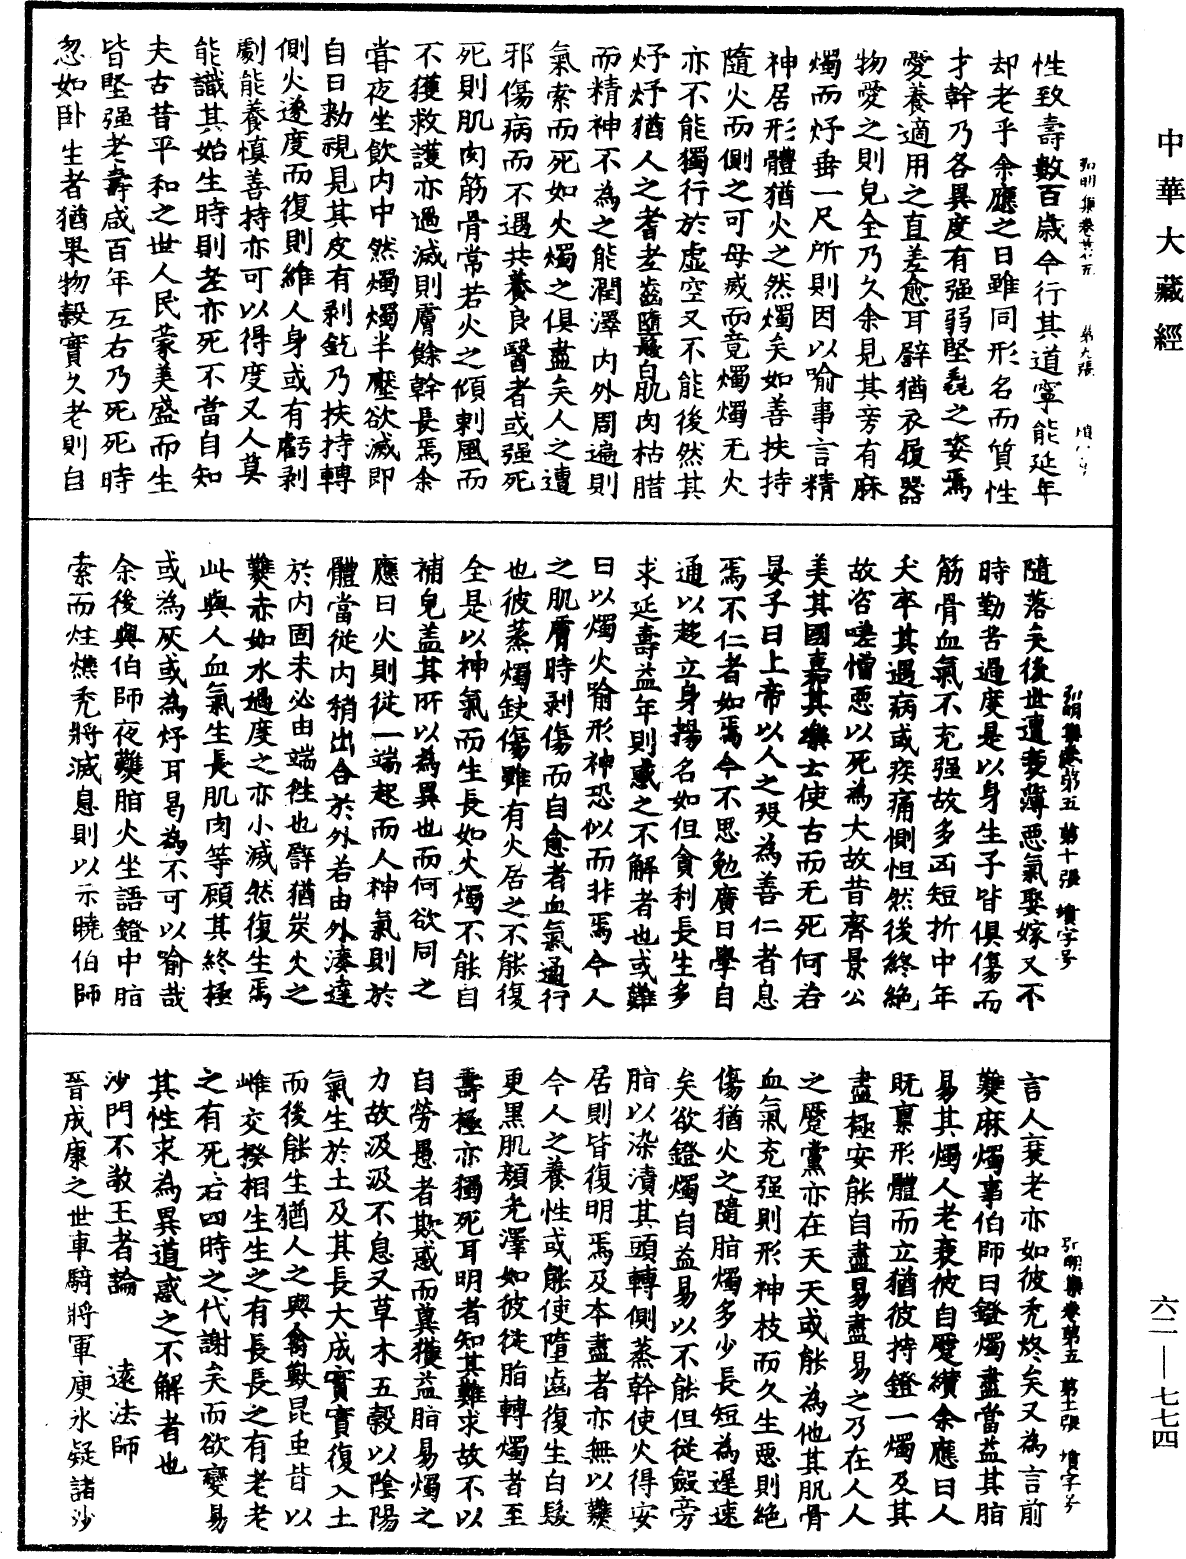 中華大藏經
性致壽數百歲今行其道寧能延年
却老乎余應之曰雖同形名而質性
才幹乃各異度有强弱堅毳之姿焉
愛養適用之直差愈耳譬猶衣履器
物愛之則皃全乃久余見其旁有麻
燭而炧垂一尺所則因以喻事言精
神居形體猶火之然燭矣如善扶持
隨火而側之可毋滅而竟燭燭无火
亦不能獨行於虛空又不能後然其
炧炧猶人之耆老齒墮髮白肌肉枯腊
而精神不為之能潤澤內外周遍則
氣索而死如火燭之俱盡矣人之遭
邪傷病而不遇共養良醫者或强死
死則肌肉筋骨常若火之傾刺風而
不獲救護亦過滅則膚餘幹長焉余
甞夜坐飲內中然燭燭半壓欲滅即
自日勑視見其皮有剥釳乃扶持轉
側火遂度而復則維人身或有虧剥
劇能養慎善持亦可以得度又人莫
能識其始生時則老亦死不當自知
夫古昔平和之世人民蒙美盛而生
皆堅强老壽咸百年左右乃死死時
忽如卧生者猶果物穀實久老則自
弘明集卷第五 第十張 墳字号
隨落矣後世遭衰薄惡氣娶嫁又不
時勤苦過度是以身生子皆俱傷而
筋骨血氣不充强故多凶短折中年
夭卒其遇病或疾痛惻怛然後終絕
故咨嗟憎惡以死為大故昔齊景公
美其國嘉其樂士使古而无死何若
晏子曰上帝以人之殁為善仁者息
焉不仁者如焉今不思勉廣日學自
通以趍立身揚名如但貪利長生多
求延壽益年則惑之不解者也或難
曰以燭火喻形神恐似而非焉今人
之肌膚時剥傷而自愈者血氣通行
也彼蒸燭缺傷雖有火居之不能復
全是以神氣而生長如火燭不能自
補皃盖其所以為異也而何欲同之
應曰火則從一端起而人神氣則於
體當從內稍出合於外若由外湊達
於內固未必由端徃也譬猶炭火之
㸐赤如水過度之亦小滅然復生焉
此與人血氣生長肌肉等顧其終極
或為灰或為炧耳曷為不可以喻哉
余後與伯師夜㸐脂火坐語鐙中脂
索而炷燋禿將滅息則以示曉伯師
弘明集卷第五 第十一張 墳字号
言人衰老亦如彼禿炷矣又為言前
㸐麻燭事伯師曰鐙燭盡當益其脂
易其燭人老衰彼自蹷纘余應曰人
旣稟形體而立猶彼持鐙一燭及其
盡極安能自盡易盡易之乃在人人
之蹷黨亦在天天或能為他其肌骨
血氣充强則形神枝而久生惡則絕
傷猶火之隨脂燭多少長短為遲速
矣欲鐙燭自益易以不能但從斂旁
脂以染漬其頭轉側蒸幹使火得安
居則皆復明焉及本盡者亦無以㸐
今人之養性或能使墮齒復生白髮
更黑肌顏光澤如彼從脂轉燭者至
壽極亦獨死耳明者知其難求故不以
自勞愚者欺惑而兾獲益脂易燭之
力故汲汲不息又草木五穀以陰陽
氣生於土及其長大成實實復入土
而後能生猶人之與禽獸昆虫皆以
雌交揆相生生之有長長之有老老
之有死若四時之代謝矣而欲變易
其性求為異道惑之不解者也
沙門不敬王者論 遠法師
晉成康之世車騎將軍庾氷疑諸沙
六二—七七四